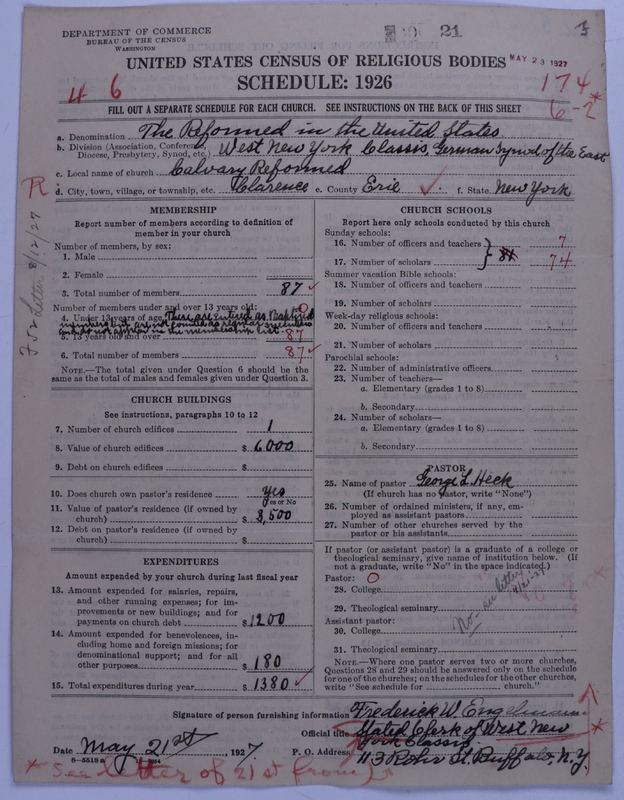 DEPARTMENT OF COMMERCE
BUREAU OF THE CENSUS
WASHINGTON
21
MAY 23 1927
UNITED STATES CENSUS OF RELIGIOUS BODIES
SCHEDULE: 1926
4 6
174*
6-2
FILL OUT A SEPARATE SCHEDULE FOR EACH CHURCH. SEE INSTRUCTIONS ON THE BACK OF THIS SHEET
a. Denomination The Reformed in the United States
b. Division (Association, Conference, Diocese, Presbytery, Synod, etc.) West New York Classis, German Synod of the East
c. Local name of church Calvary Reformed
d. City, town, village, or township, etc. Clarence e. County Erie f. State New York
MEMBERSHIP
Report number of members according to definition of
member in your church
Number of members, by sex:
1. Male
2. Female
3. Total number of members 87
Number of members under and over 13 years old:
4. Under 13 years of age There are entered as Baptized 0
members but are not counted as regular members
and do not appear in the membership list.
5. 13 years old and over 87
6. Total number of members 87
NOTE.—The total given under Question 6 should be the
same as the total of males and females given under Question 3.
CHURCH BUILDINGS
See instructions, paragraphs 10 to 12
7. Number of church edifices 1
8. Value of church edifices $ 6000
9. Debt on church edifices $
10. Does church own pastor's residence Yes
Yes or No
11. Value of pastor's residence (if owned by
church) $ 3,500
12. Debt on pastor's residence (if owned by
church) $
EXPENDITURES
Amount expended by your church during last fiscal year
13. Amount expended for salaries, repairs,
and other running expenses; for im-
provements or new buildings; and for
payments on church debt $ 1200
14. Amount expended for benevolences, in-
cluding home and foreign missions; for
denominational support; and for all
other purposes $ 180
15. Total expenditures during year $ 1380
CHURCH SCHOOLS
Report here only schools conducted by this church
Sunday schools:
16. Number of officers and teachers 7
17. Number of scholars 81 74
Summer vacation Bible schools:
18. Number of officers and teachers
19. Number of scholars
Week-day religious schools:
20. Number of officers and teachers
21. Number of scholars
Parochial schools:
22. Number of administrative officers
23. Number of teachers—
a. Elementary (grades 1 to 8)
b. Secondary
24. Number of scholars—
a. Elementary (grades 1 to 8)
b. Secondary
PASTOR
25. Name of pastor George L. Heck
(If church has no pastor, write "None")
26. Number of ordained ministers, if any, em-
ployed as assistant pastors
27. Number of other churches served by the
pastor or his assistants
If pastor (or assistant pastor) is a graduate of a college or
theological seminary, give name of institution below. (If
not a graduate, write "No" in the space indicated.)
Pastor: 0
28. College
29. Theological seminary
Assistant pastor:
30. College
31. Theological seminary
No
NOTE.—Where one pastor serves two or more churches,
Questions 28 and 29 should be answered only on the schedule
for one of the churches; on the schedules for the other churches,
write "See schedule for church."
Signature of person furnishing information Frederick W. Engelmann
Official title Stated Clerk of West New
York Classis
Date May 21st, 1927. P. O. Address 113 Rohr St. Buffalo, N.Y.
* See letter of 21st from